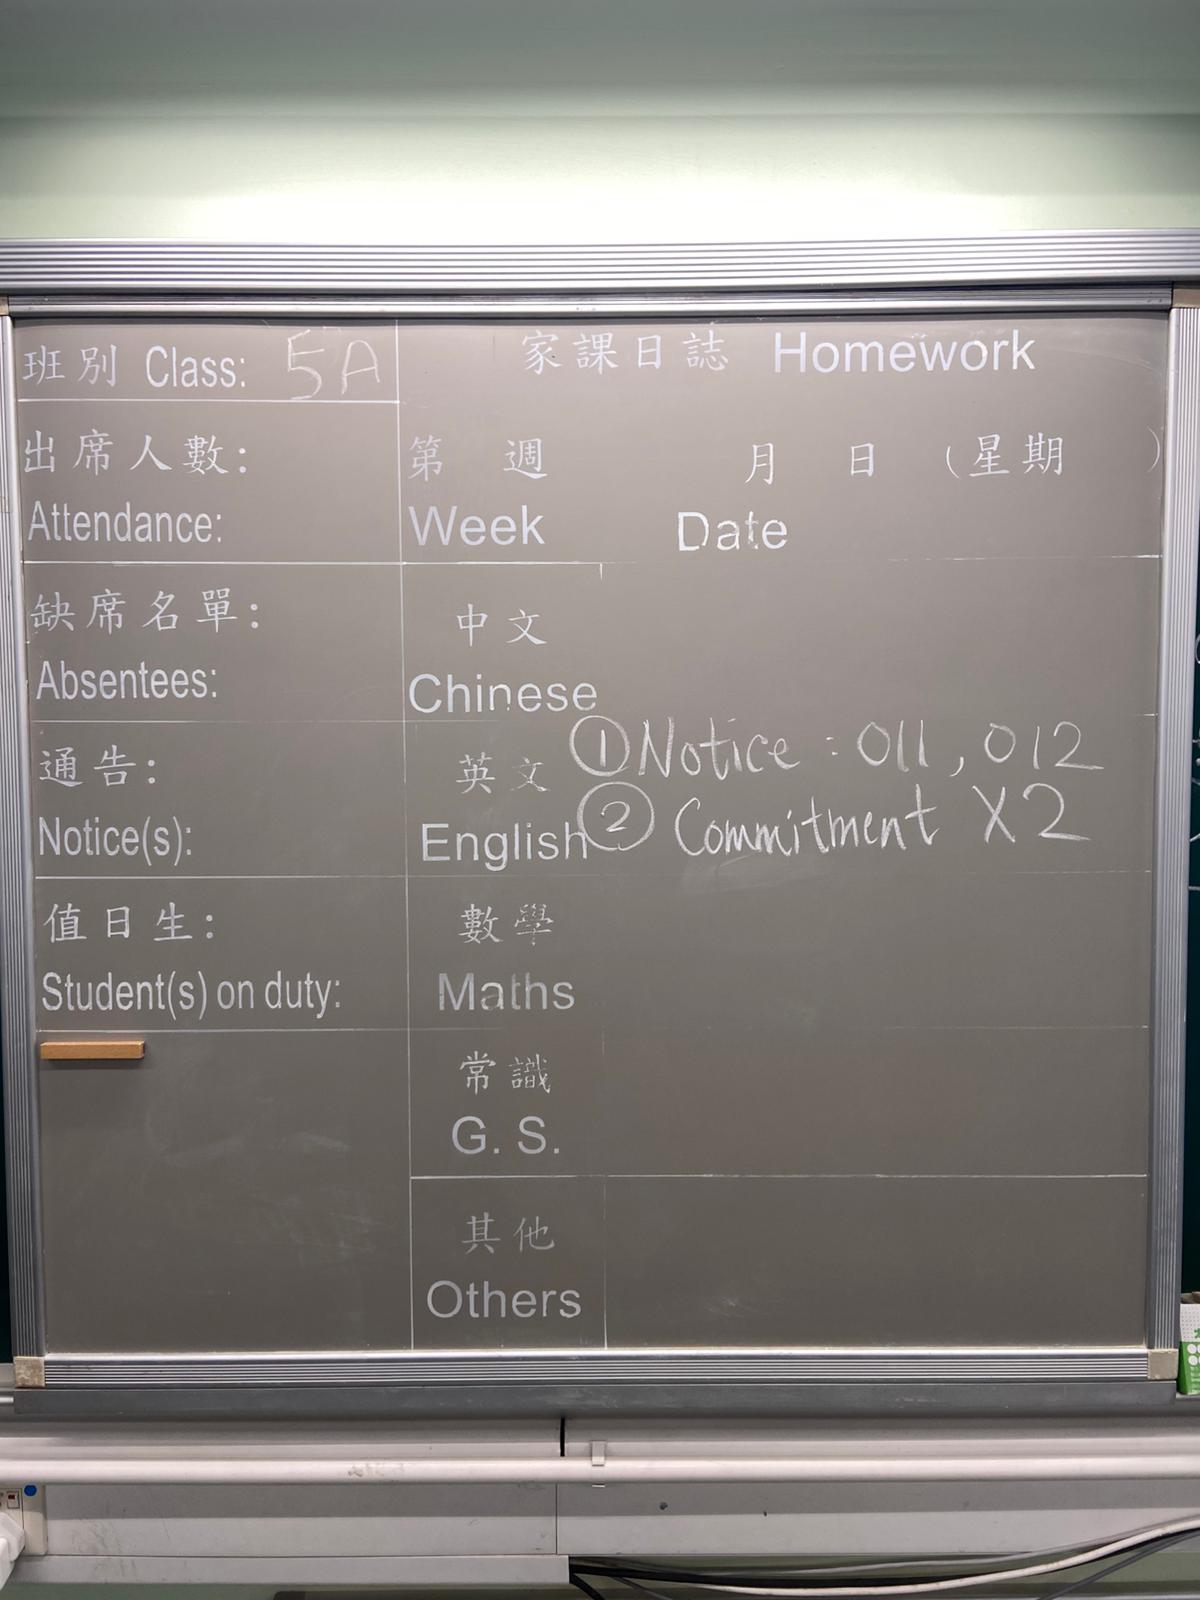 班別 Class: 5A
家課日誌 Homework
出席人數:
Attendance:
第 週 月 日 (星期 )
Week Date
缺席名單:
Absentees:
中文
Chinese
通告:
Notice(s):
英文 ①Notice : 011, 012
English ② Commitment X2
值日生:
Student(s) on duty:
數學
Maths
常識
G. S.
其他
Others